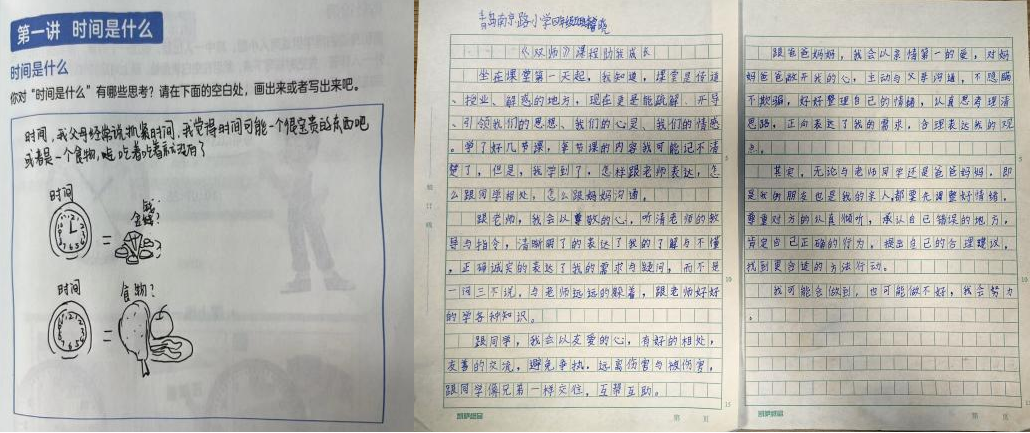 第一讲 时间是什么
时间是什么
你对“时间是什么”有哪些思考？请在下面的空白处，画出来或者写出来吧。
时间，我父母经常说抓紧时间，我觉得时间可能一个很宝贵的东西吧
或者是一个食物，吃着吃着就没有了
时间
钱?
金条?
=
时间
食物?
=
青岛南京路小学四年级
《双师》课程助我成长
坐在课堂第一天起，我知道，课堂是传道
、授业、解惑的地方，现在更是能疏解、开导
、引领我们的思想、我们的心灵、我们的情感
。学了好几节课，章节课的内容我可能记不清
楚了，但是，我学到了，怎样跟老师表达，怎
么跟同学相处，怎么跟妈妈沟通。
跟老师，我会以尊敬的心，听清老师的教
导与指令，清晰明了的表达了我的了解与不懂
，正确诚实的表达了我的需求与疑问，而不是
一问三不说，与老师远远的躲着，跟老师好好
的学各种知识。
跟同学，我会以友爱的心，有好的相处，
友善的交流，避免争执，远离伤害与被伤害，
跟同学像兄弟一样交往，互帮互助。
跟爸爸妈妈，我会以亲情第一的爱，对妈
妈爸爸敞开我的心，主动与父母沟通，不隐瞒
不欺骗，好好整理自己的情绪，认真思考理清
思路，正向表达了我的需求，合理表达我的观
点。
其实，无论与老师同学还是爸爸妈妈，即
是我的朋友也是我的亲人，都要先调整好情绪，
尊重对方的认真倾听，承认自己错误的地方，
肯定自己正确的行为，提出自己的合理建议，
找到更合适的方法行动。
我可能会做到，也可能做不好，我会努力
。
第 页
第 页